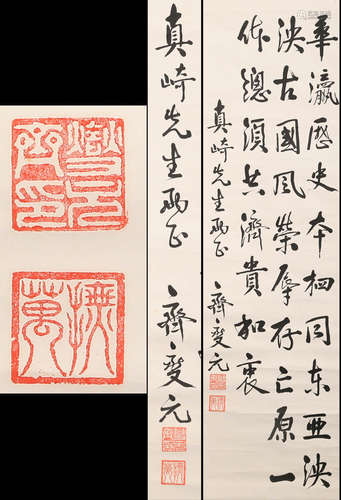 華瀛歷史本相同东亚泱
泱古國風榮辱存亡原一
体總須共濟貴和衷
真崎先生雅正 齊燮元
真崎先生雅正 齊燮元
齊燮元印
撫萬